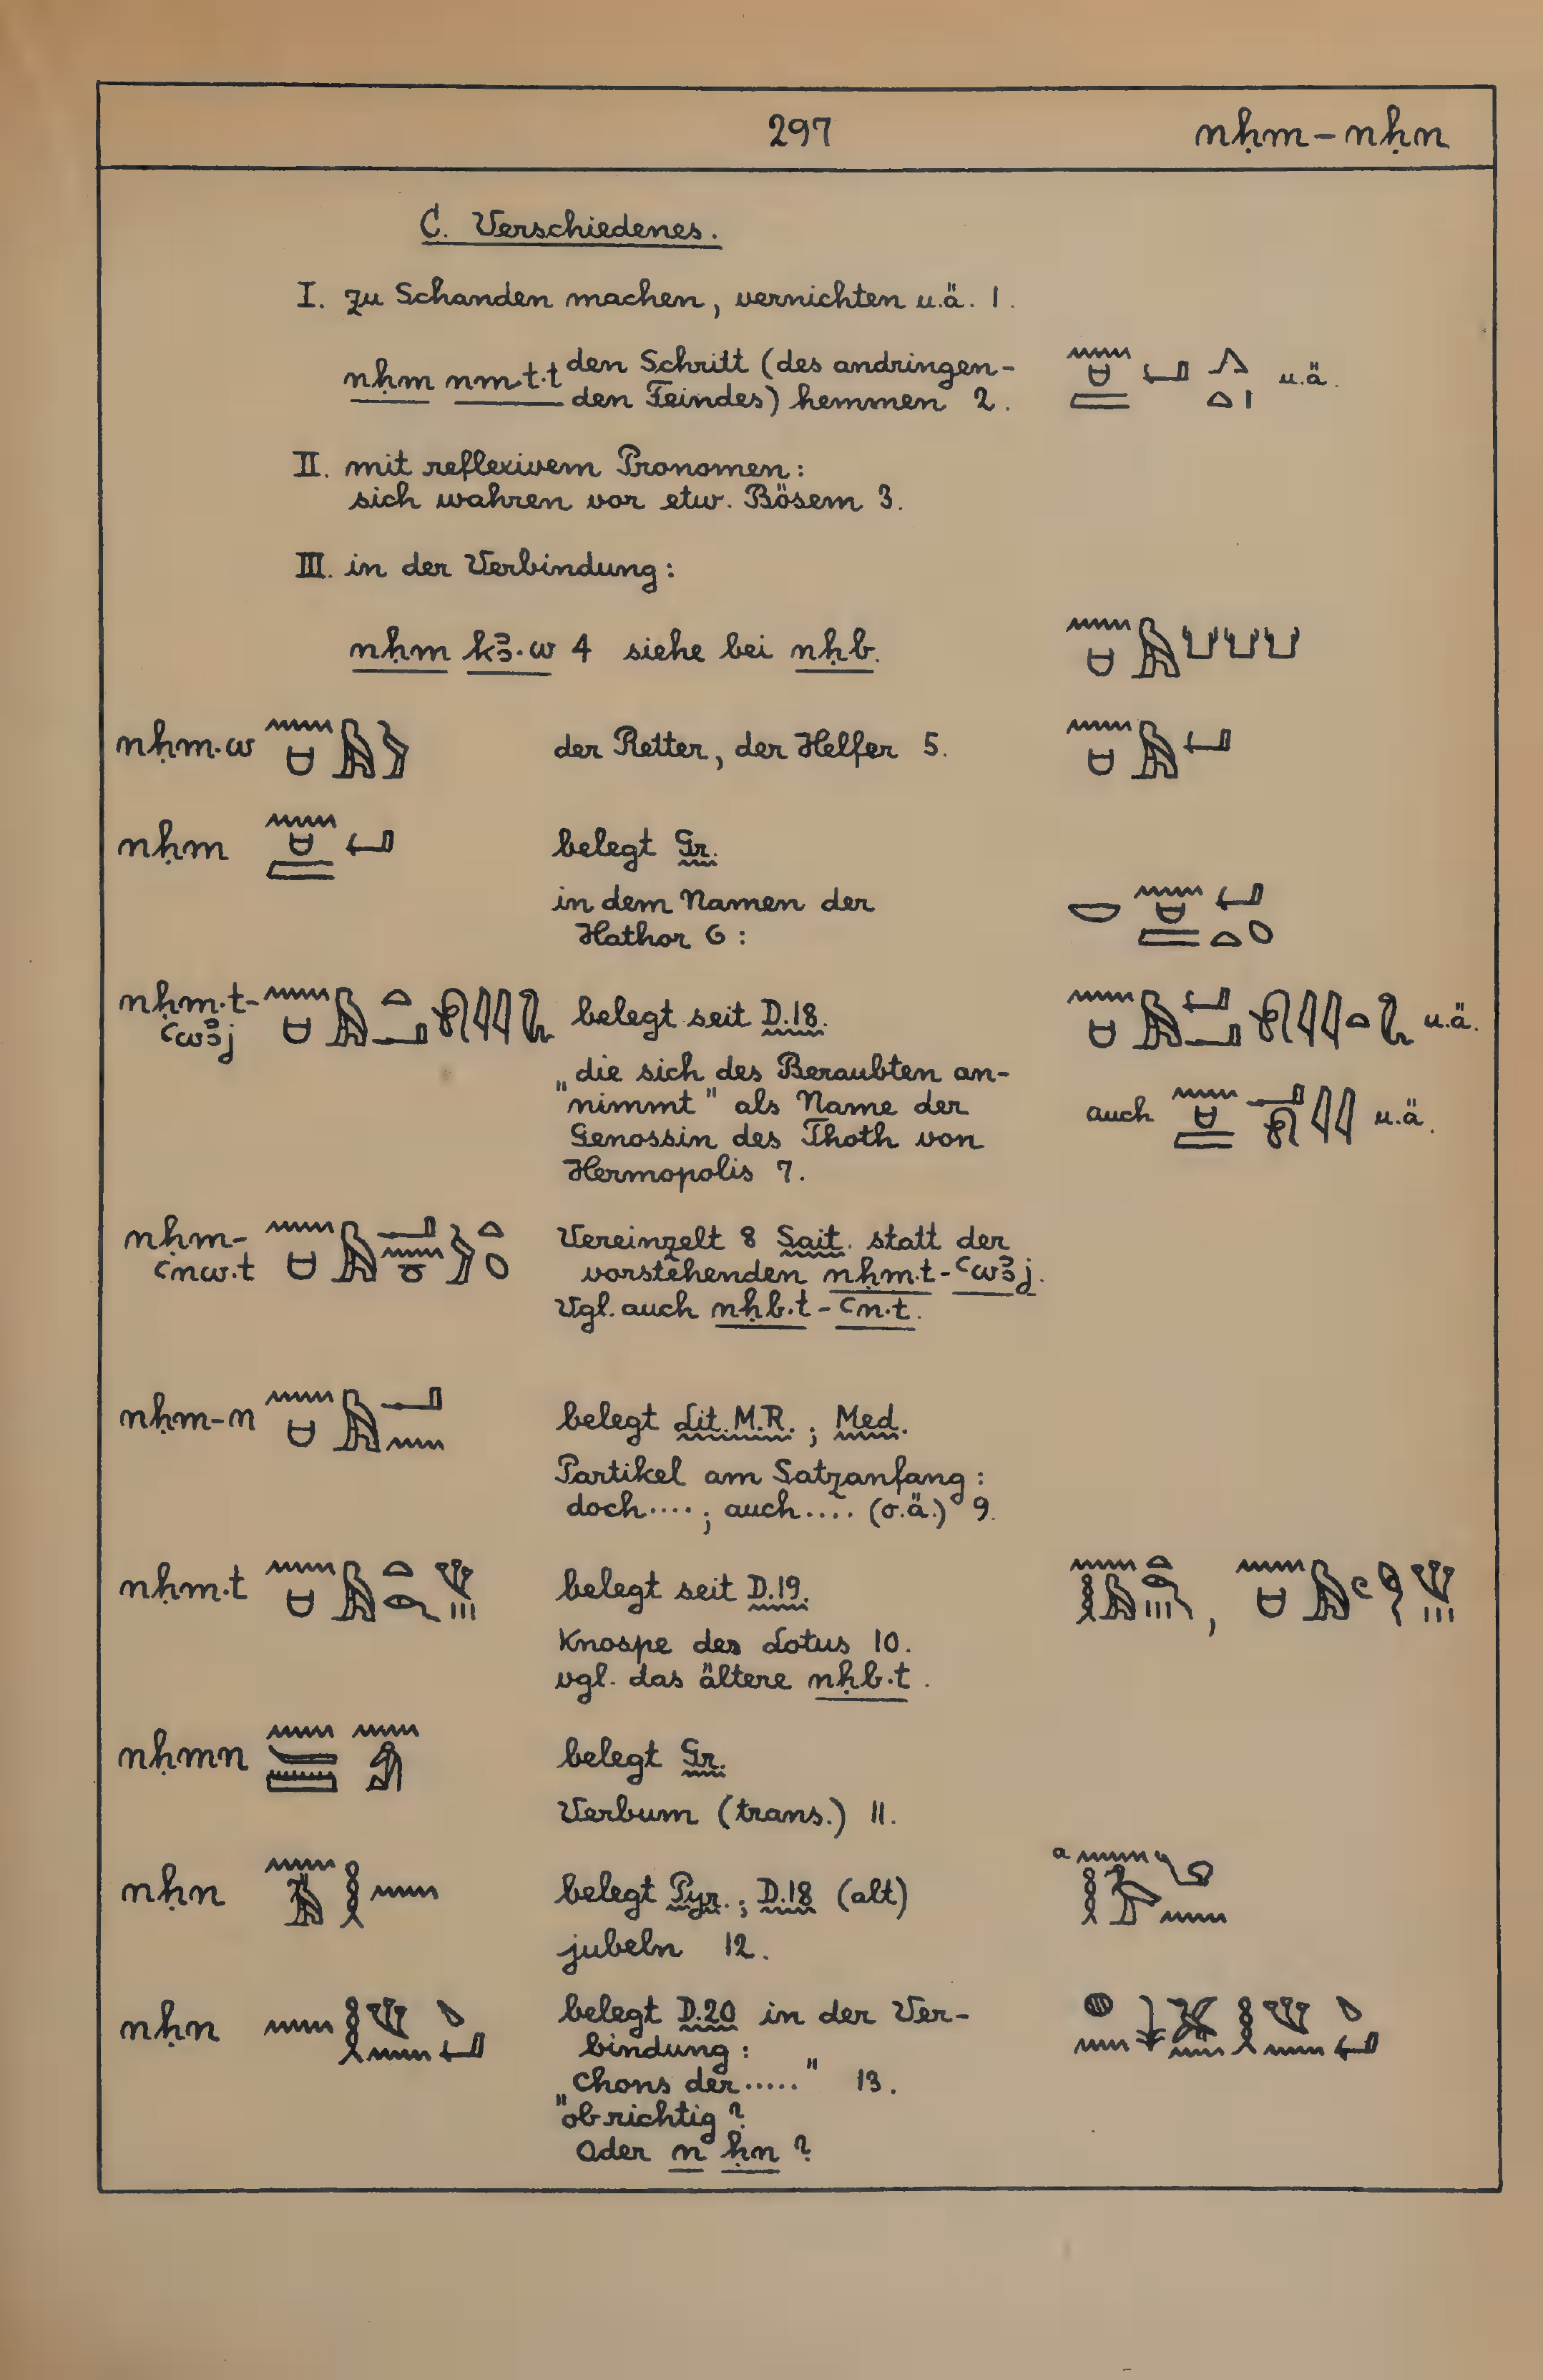 297 nḥm – nḥn
C. Verschiedenes.
I. zu Schanden machen, vernichten u.ä. 1.
nḥm nmt.t den Schritt (des andringen-
den Feindes) hemmen 2. u.ä.
II. mit reflexivem Pronomen:
sich wahren vor etw. Bösem 3.
III. in der Verbindung:
nḥm kꜣ.w 4 siehe bei nḥb.
nḥm.w der Retter, der Helfer 5.
nḥm belegt Gr.
in dem Namen der
Hathor 6:
nḥm.t- belegt seit D.18. u.ä.
ꜥwꜣj
„die sich des Beraubten an-
nimmt" als Name der auch u.ä.
Genossin des Thoth von
Hermopolis 7.
nḥm- Vereinzelt 8 Sait. statt der
ꜥnw.t vorstehenden nḥm.t-ꜥwꜣj.
Vgl. auch nḥb.t-ꜥn.t.
nḥm-n belegt Lit. M.R.; Med.
Partikel am Satzanfang:
doch....; auch.... (o.ä.) 9.
nḥm.t belegt seit D.19. ,
Knospe des Lotus 10.
vgl. das ältere nḥb.t.
nḥmn belegt Gr.
Verbum (trans.) 11.
nḥn belegt Pyr.; D.18 (alt) a
jubeln 12.
nḥn belegt D.20 in der Ver-
bindung:
„Chons der....." 13.
ob richtig?
Oder n ḥn?